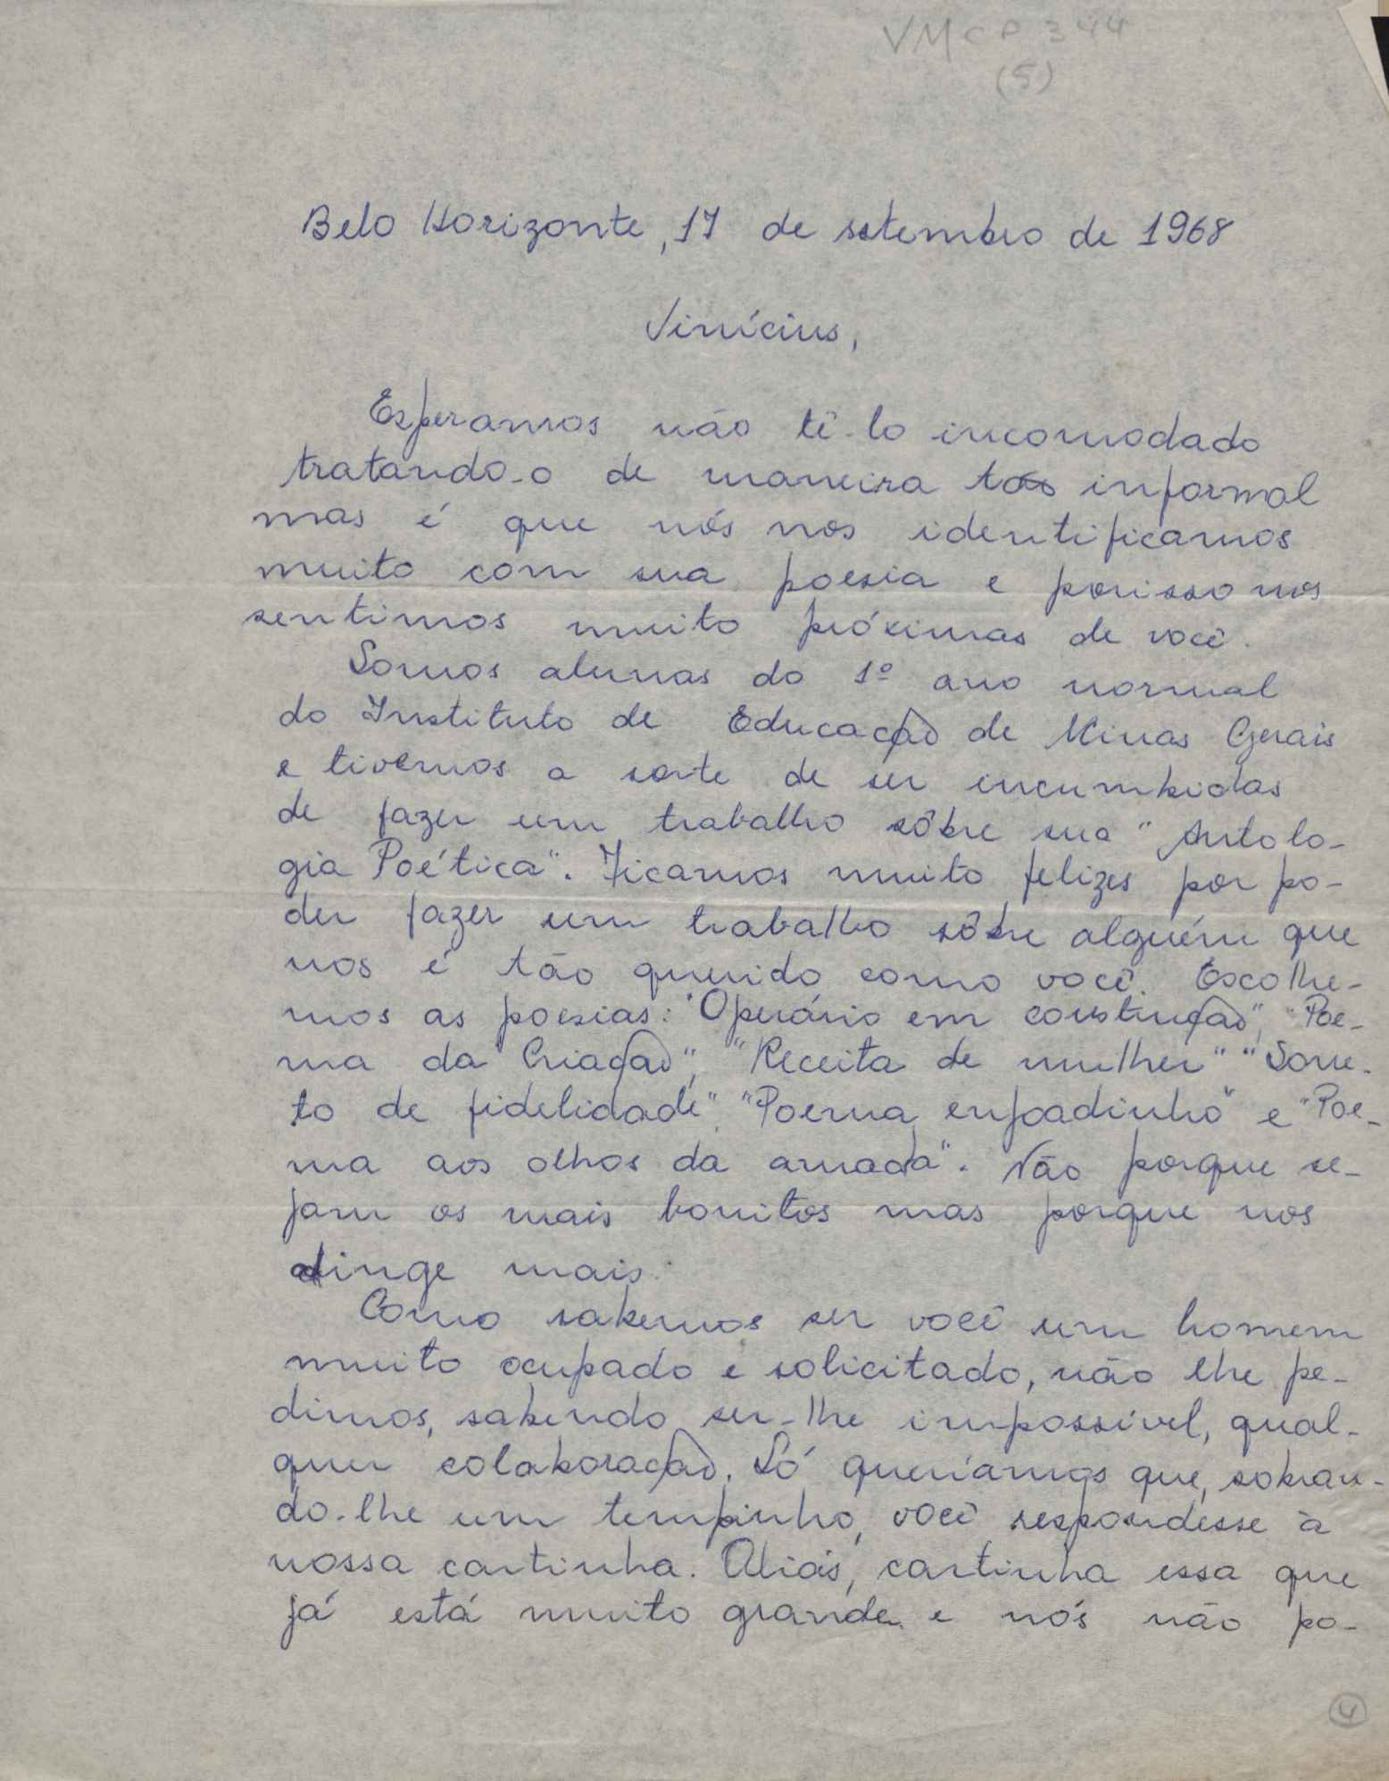 VMCP 344
(5)
Belo Horizonte, 17 de setembro de 1968
Vinícius,
Esperamos não tê-lo incomodado
tratando-o de maneira tão informal
mas é que nós nos identificamos
muito com sua poesia e porisso nos
sentimos muito próximas de você.
Somos alunas do 1º ano normal
do Instituto de Educação de Minas Gerais
e tivemos a sorte de ser incumbidas
de fazer um trabalho sôbre sua "Antolo-
gia Poética". Ficamos muito felizes por po-
der fazer um trabalho sôbre alguém que
nos é tão querido como você. Escolhe-
mos as poesias: "Operário em construção", "Poe-
ma da Criação", "Receita de mulher" "Sone-
to de fidelidade", "Poema enjoadinho" e "Poe-
ma aos olhos da amada". Não porque se-
jam os mais bonitos mas porque nos
atinge mais.
Como sabemos ser você um homem
muito ocupado e solicitado, não lhe pe-
dimos, sabendo ser-lhe impossível, qual-
quer colaboração. Só queríamos que, sobran-
do-lhe um tempinho, você respondesse à
nossa cartinha. Aliás, cartinha essa que
já está muito grande e nós não po-
4